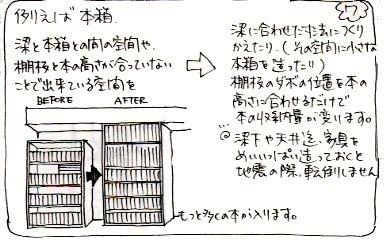 例えば 本箱
梁と本箱との間の空間や、
棚板と本の高さが合っていない
ことで出来ている空間を
BEFORE AFTER
もっと多くの本が入ります。
7
梁に合わせた寸法につくり
かえたり、(その空間に小さな
本箱を造ったり)
棚板のダボの位置を本の
高さに合わせるだけで
本の収納量が変ります。
◎梁下や天井迄、家具を
めいいっぱい造っておくと
地震の際、転倒しません